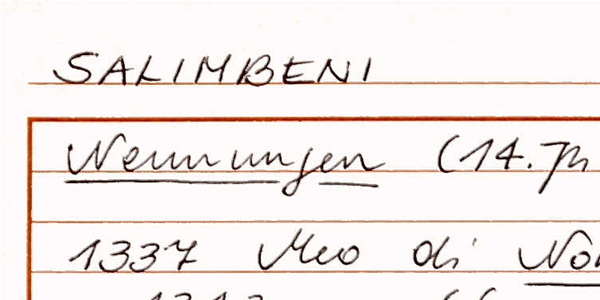 SALIMBENI
Nennungen (14. Jh
1337 Meo di No